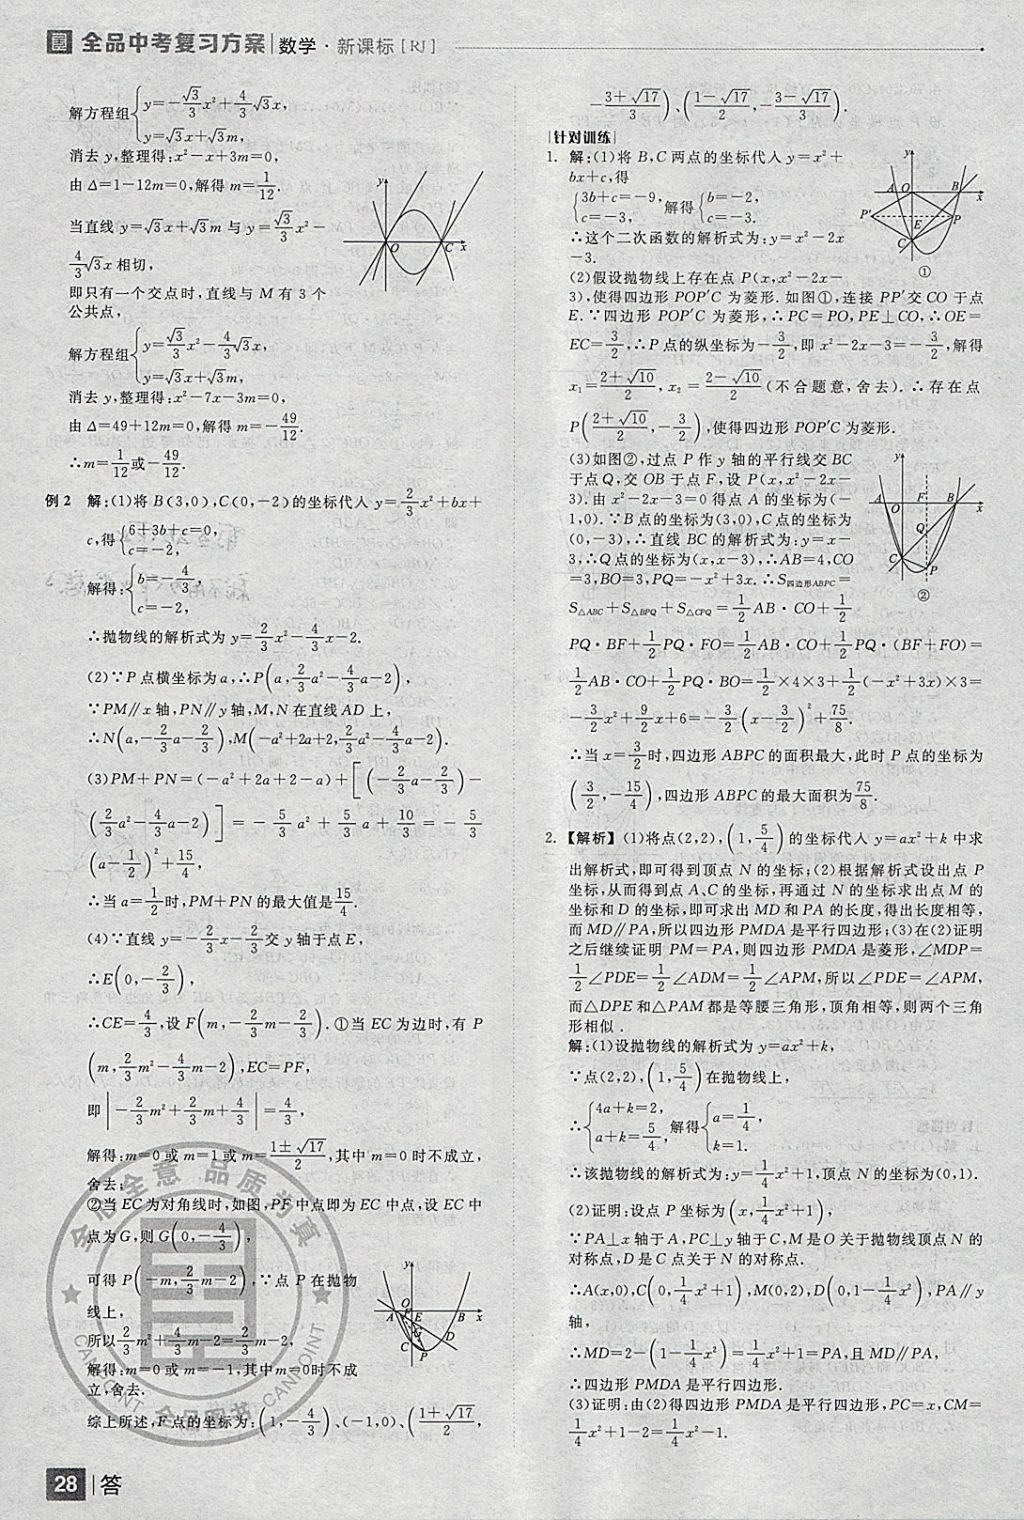 全品中考复习方案 | 数学·新课标[RJ]
解方程组{y=-√3/3x²+4/3√3x, y=√3x+√3m,
消去y,整理得:x²-x+3m=0,
由Δ=1-12m=0,解得m=1/12.
当直线y=√3x+√3m与y=√3/3x²-
4/3√3x相切,
即只有一个交点时,直线与M有3个
公共点,
解方程组{y=√3/3x²-4/3√3x, y=√3x+√3m,
消去y,整理得:x²-7x-3m=0,
由Δ=49+12m=0,解得m=-49/12.
∴m=1/12或-49/12.
例2 解:(1)将B(3,0),C(0,-2)的坐标代入y=2/3x²+bx+
c,得{6+3b+c=0, c=-2,
解得:{b=-4/3, c=-2,
∴抛物线的解析式为y=2/3x²-4/3x-2.
(2)∵P点横坐标为a,∴P(a,2/3a²-4/3a-2),
∵PM∥x轴,PN∥y轴,M,N在直线AD上,
∴N(a,-2/3a-2/3),M(-a²+2a+2,2/3a²-4/3a-2).
(3)PM+PN=(-a²+2a+2-a)+[(-2/3a-2/3)-
(2/3a²-4/3a-2)]=-5/3a²+5/3a+10/3=-5/3
(a-1/2)²+15/4,
∴当a=1/2时,PM+PN的最大值是15/4.
(4)∵直线y=-2/3x-2/3交y轴于点E,
∴E(0,-2/3),
∴CE=4/3,设F(m,-2/3m-2/3).①当EC为边时,有P
(m,2/3m²-4/3m-2),EC=PF,
即|-2/3m²+2/3m+4/3|=4/3,
解得:m=0或m=1或m=(1±√17)/2,其中m=0时不成立,
舍去;
②当EC为对角线时,如图,PF中点即为EC中点,设EC中
点为G,则G(0,-4/3),
可得P(-m,2/3m-2),∵点P在抛物
线上,
所以2/3m²+4/3m-2=2/3m-2,
解得:m=0或m=-1,其中m=0时不成
立,舍去.
综上所述,F点的坐标为:(1,-4/3)、(-1,0)、((1+√17)/2,
y
O
C
x
y
A
O
F
E
B
x
G
C
D
P
全心全意 品质为真
CANPOINT
CANPOINT
全品图书
28 | 答
-(3+√17)/3)、((1-√17)/2,-(3-√17)/3).
针对训练
1. 解:(1)将B,C两点的坐标代入y=x²+
bx+c,得
{3b+c=-9, c=-3, 解得{b=-2, c=-3.
∴这个二次函数的解析式为:y=x²-2x
-3.
(2)假设抛物线上存在点P(x,x²-2x-
3),使得四边形POP′C为菱形.如图①,连接PP′交CO于点
E.∵四边形POP′C为菱形,∴PC=PO,PE⊥CO,∴OE=
EC=3/2,∴P点的纵坐标为-3/2,即x²-2x-3=-3/2,解得
x₁=(2+√10)/2,x₂=(2-√10)/2(不合题意,舍去).∴存在点
P((2+√10)/2,-3/2),使得四边形POP′C为菱形.
(3)如图②,过点P作y轴的平行线交BC
于点Q,交OB于点F,设P(x,x²-2x-
3).由x²-2x-3=0得点A的坐标为(-
1,0).∵B点的坐标为(3,0),C点的坐标为
(0,-3),∴直线BC的解析式为:y=x-
3,∴Q点的坐标为(x,x-3),∴AB=4,CO
=3,BO=3,PQ=-x²+3x.∴S四边形ABPC=
S△ABC+S△BPQ+S△CPQ=1/2AB·CO+1/2
PQ·BF+1/2PQ·FO=1/2AB·CO+1/2PQ·(BF+FO)=
1/2AB·CO+1/2PQ·BO=1/2×4×3+1/2(-x²+3x)×3=
-3/2x²+9/2x+6=-3/2(x-3/2)²+75/8.
∴当x=3/2时,四边形ABPC的面积最大,此时P点的坐标为
(3/2,-15/4),四边形ABPC的最大面积为75/8.
y
A
O
B
x
P′
E
P
C
①
y
A
F
B
x
Q
C
P
②
2.【解析】(1)将点(2,2),(1,5/4)的坐标代入y=ax²+k中求
出解析式,即可得到顶点N的坐标;(2)根据解析式设出点P
坐标,从而得到点A、C的坐标,再通过N的坐标求出点M的
坐标和D的坐标,即可求出MD和PA的长度,得出长度相等,
而MD∥PA,所以四边形PMDA是平行四边形;(3)在(2)证明
之后继续证明PM=PA,则四边形PMDA是菱形,∠MDP=
1/2∠PDE=1/2∠ADM=1/2∠APM,所以∠PDE=∠APM,
而△DPE和△PAM都是等腰三角形,顶角相等,则两个三角
形相似.
解:(1)设抛物线的解析式为y=ax²+k,
∵点(2,2),(1,5/4)在抛物线上,
∴{4a+k=2, a+k=5/4, 解得{a=1/4, k=1.
∴该抛物线的解析式为:y=1/4x²+1,顶点N的坐标为(0,1).
(2)证明:设点P坐标为(x,1/4x²+1),
∵PA⊥x轴于A,PC⊥y轴于C,M是O关于抛物线顶点N的
对称点,D是C点关于N的对称点.
∴A(x,0),C(0,1/4x²+1),M(0,2),D(0,1-1/4x²),PA∥y
轴,
∴MD=2-(1-1/4x²)=1/4x²+1=PA,且MD∥PA,
∴四边形PMDA是平行四边形.
(3)证明:由(2)得四边形PMDA是平行四边形,PC=x,CM=
1/4x²+1-2=1/4x²-1.